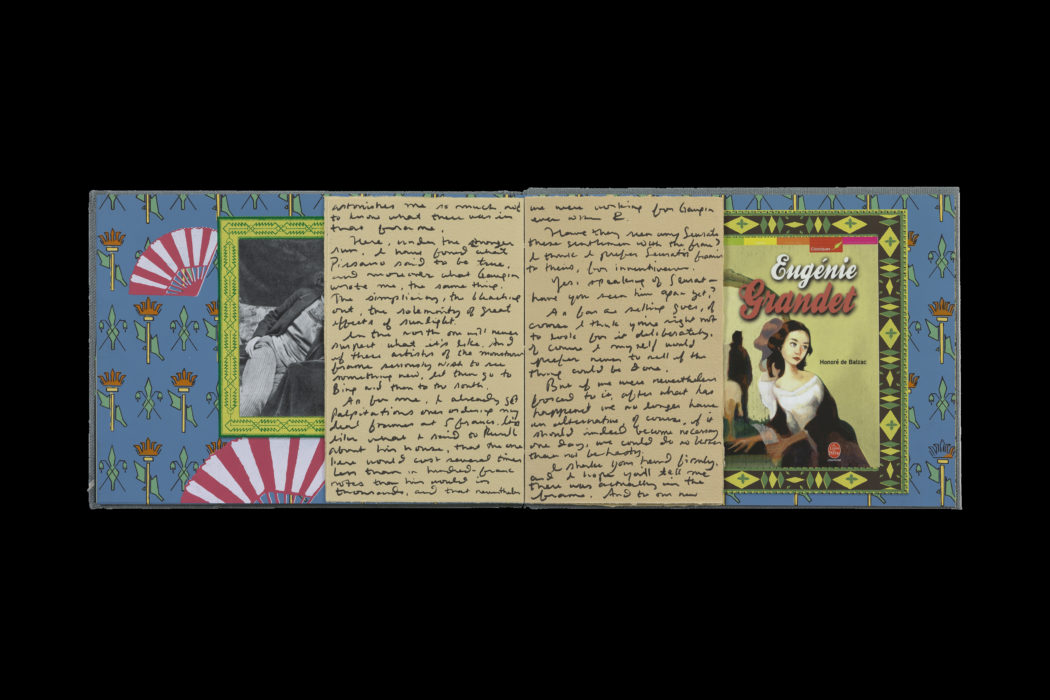 astonishes me so much not
to know what there was in
that frame.
Here, under the stronger
sun, I have found what
Pissarro said to be true,
and moreover what Gauguin
wrote me, the same thing.
The simpliciary, the bleaching
out, the solemnity of great
effects of sunlight.
In the north one will never
suspect what it's like. And
if these artists of the monstrous
frame seriously wish to see
something new, let them go to
Bing and then to the south.
As for me, I already get
palpitations over ordering my
deal frames at 5 francs.
like what I said to
about his house, that the one
here would cost several times
less than in hundred-franc
notes than his would in
thousands, and that nevertheless
we were working for Gauguin
even with
Have they seen any Seurats
these gentlemen with the frame?
I think I prefer Seurat's frame
to theirs, for inventiveness.
Yes, speaking of Seurat —
have you seen him again yet?
As far as selling goes, of
course I think you're right not
to look for it deliberately.
Of course I myself would
prefer never to sell if the
thing could be done.
But if we were nevertheless
forced to it, after what has
happened we no longer have
an alternative of course, if it
should indeed become necessary
one day, we could do no better
than not be hasty.
I shake your hand firmly,
and I hope you'll tell me
there was actually in the
frame. And to our new
Classiques
Eugénie
Grandet
Honoré de Balzac